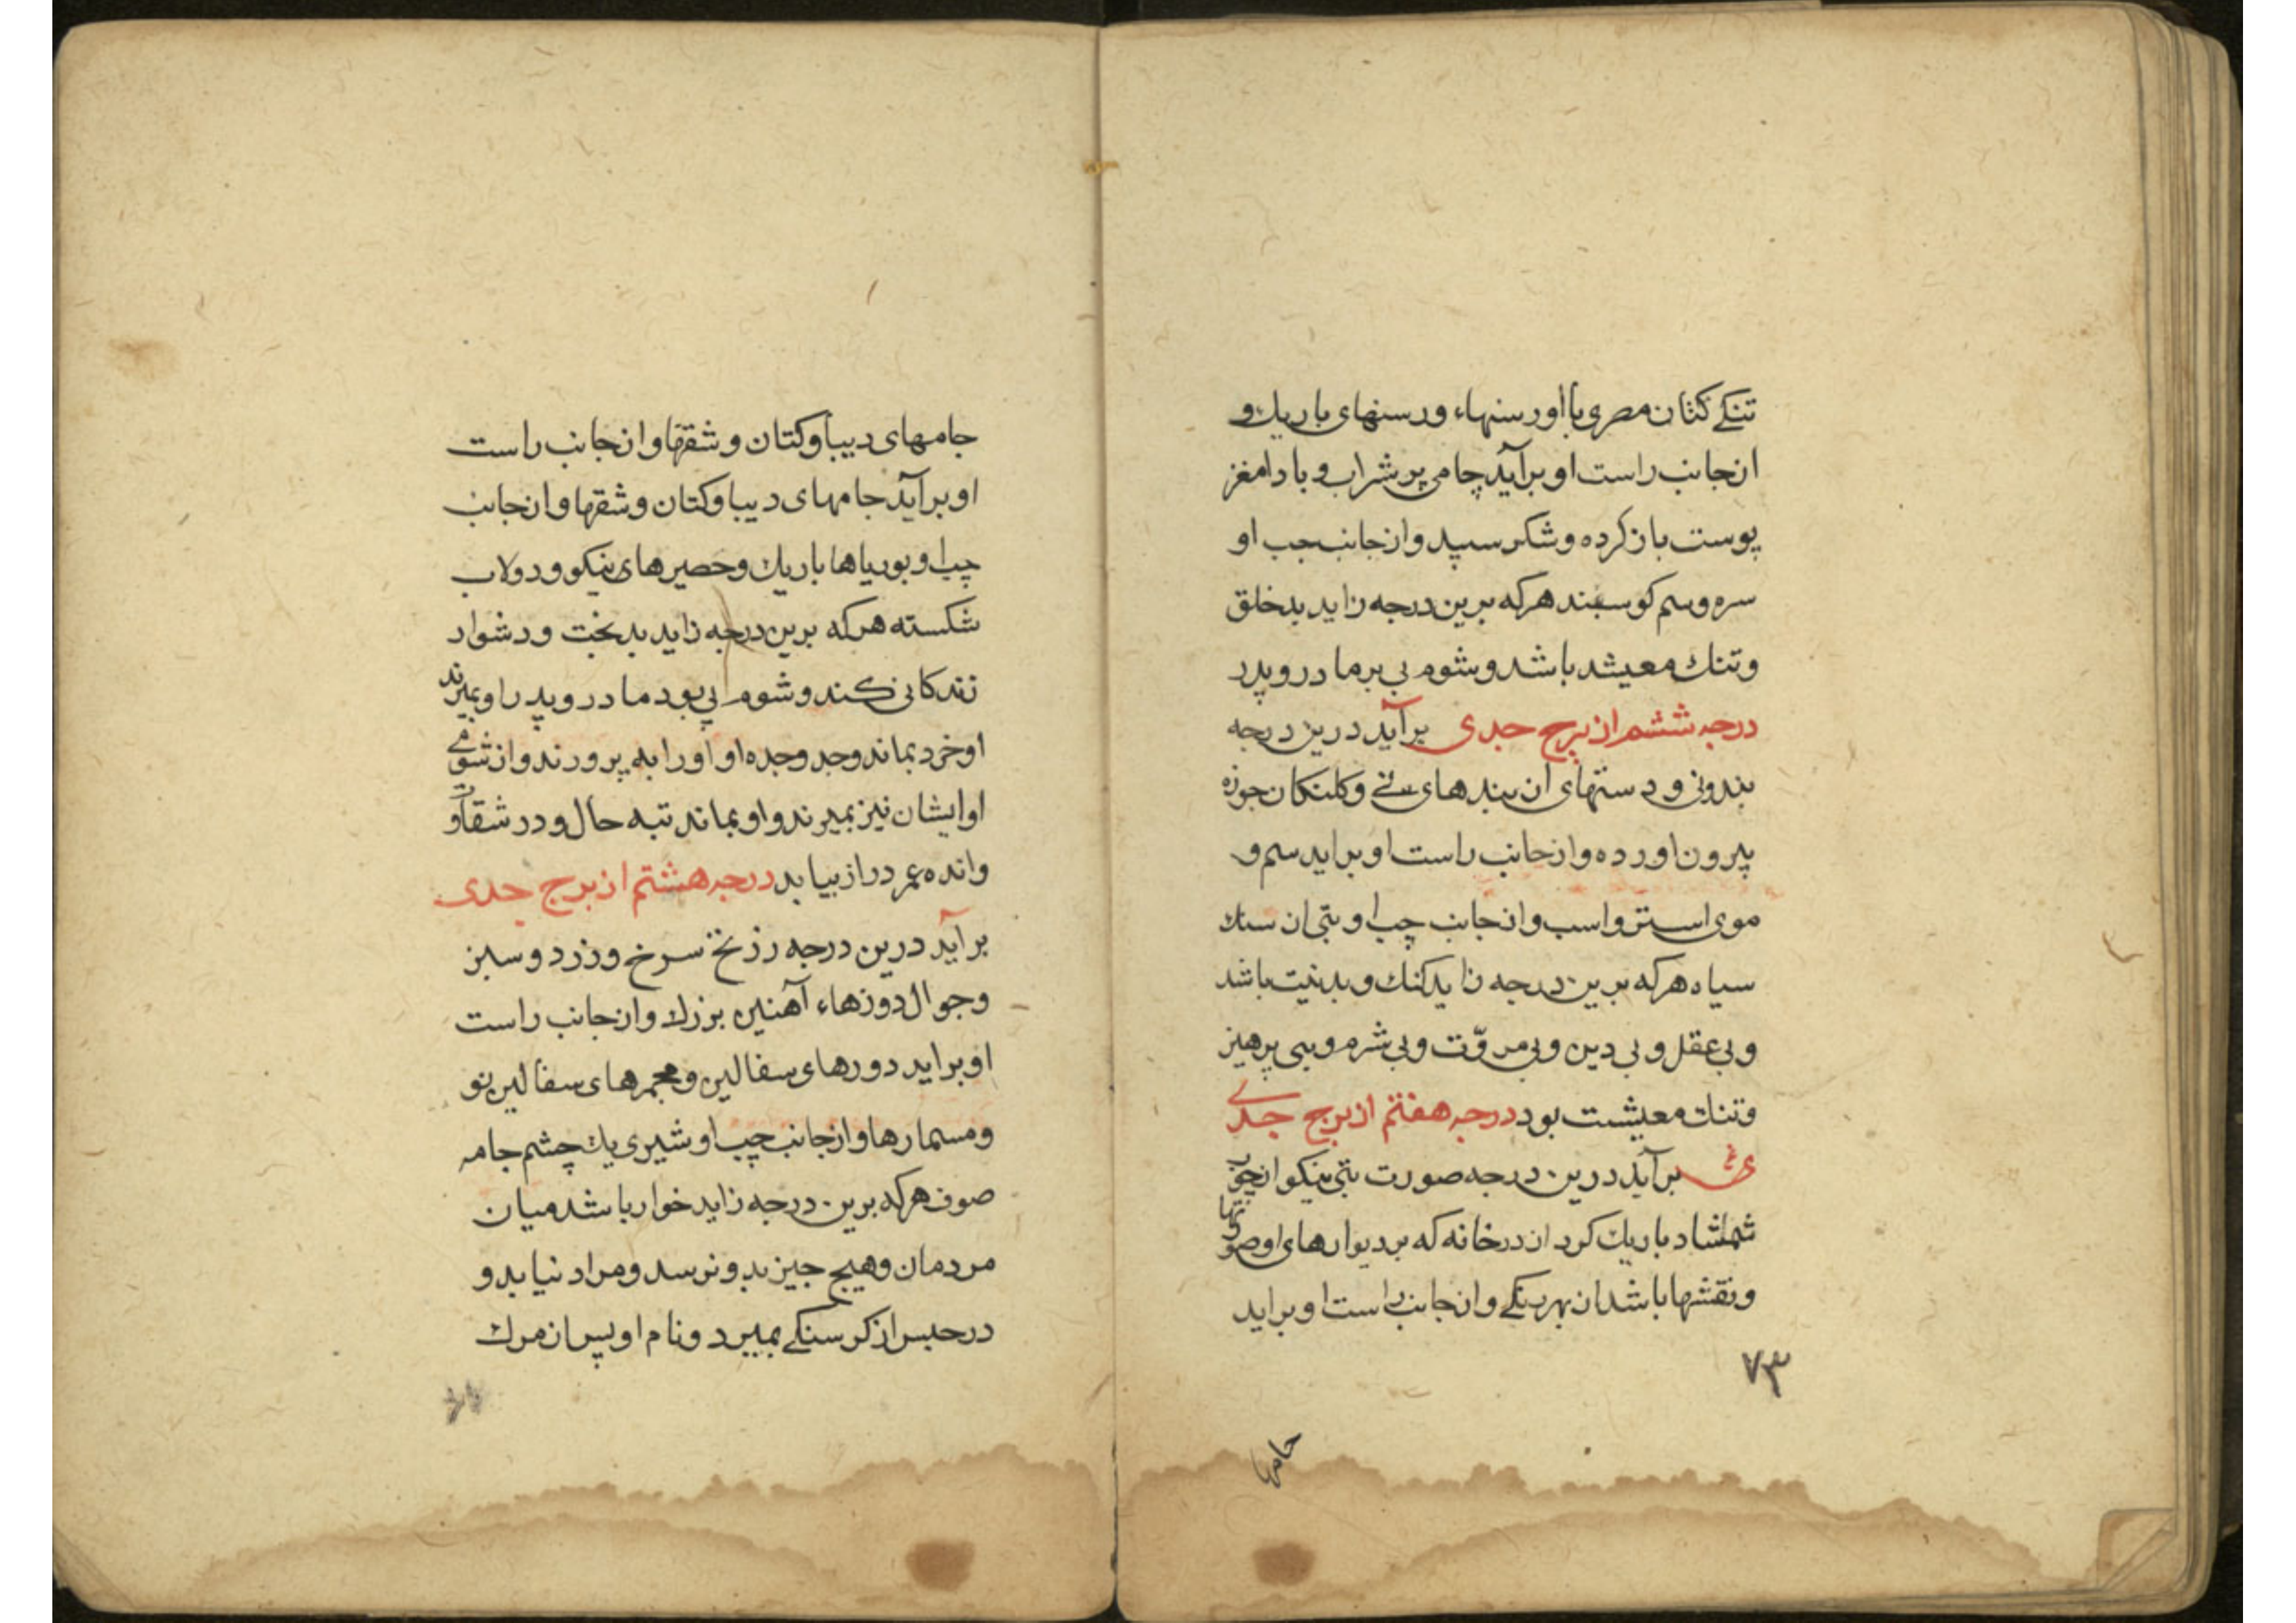 تنکے کتان مصری با اورسنها، ورسنهای باریك و
از جانب راست او برآید جامی پر شراب و بادام مغز
پوست باز کرده و شکر سپید و از جانب چپ او
سره و سم کوسبند هرکه برین درجه زاید بدخلق
و تنك معیشد باشد و شوم پی بر مادر و پدر
درجه ششم از برج جدی برآید درین درجه
بندونی و دستهای ان بندهای نئے و کلنکان جوزه
بیرون اورده و از جانب راست او براید سم و
موی استر و اسب و از جانب چپ او بتی از سنك
سیاه هرکه برین درجه زاید کنك و بدنیت باشد
و بی عقل و بی دین و بی مروّت و بی شرم و بیی پرهیز
و تنك معیشت بود درجه هفتم از برج جدے
برآید درین درجه صورت بتی نیکو از چوب
شمشاد باریك کرد از درخانه که بر دیوارهای او صورتها
و نقشها باشد از بهر نکے و از جانب راست او براید
۷۳
جامها
جامهای دیبا و کتان و شقها و از جانب راست
او برآید جامهای دیبا و کتان و شقها و از جانب
چپ او بوریاها باریك و حصیرهای نیکو و دولاب
شکسته هرکه برین درجه زاید بدبخت و دشوار
زندکانی کند و شوم پی بود مادر و پدر را و بمیرند
او خرد بماند و جد و جده او او را به پرورند و از شومے
او ایشان نیز بمیرند و او بماند تبه حال و در شقاوت
و انده عمر دراز بیابد درجه هشتم از برج جدی
برآید درین درجه رزنخ سرخ و زرد و سبز
و جوال دوزها، آهنین بزرك و از جانب راست
او براید دورهای سفالین و مجمرهای سفالین نو
و مسمارها و از جانب چپ او شیری یك چشم جامه
صوف هرکه برین درجه زاید خوار باشد میان
مردمان و هیچ جیز بدو نرسد و مراد نیابد و
در حبس از کرسنکے بمیرد و نام او پس از مرك